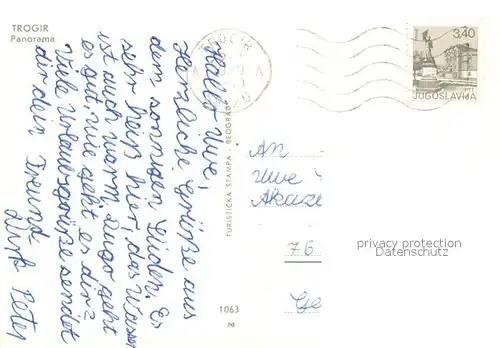 TROGIR
Panorama
Hallo Uwe,
Herzliche Grüße aus
dem sonnigen Süden. Es
sehr heiß hier, das Wasser
ist auch warm. geht
es gut. Wie geht es dir?
Viele Urlaubsgrüße sendet
dir dein Freund
Peter
TURISTICKA STAMPA - BEOGRAD
1063
TROGIR
3,40
JUGOSLAVIJA
An
Uwe
76
privacy protection
Datenschutz